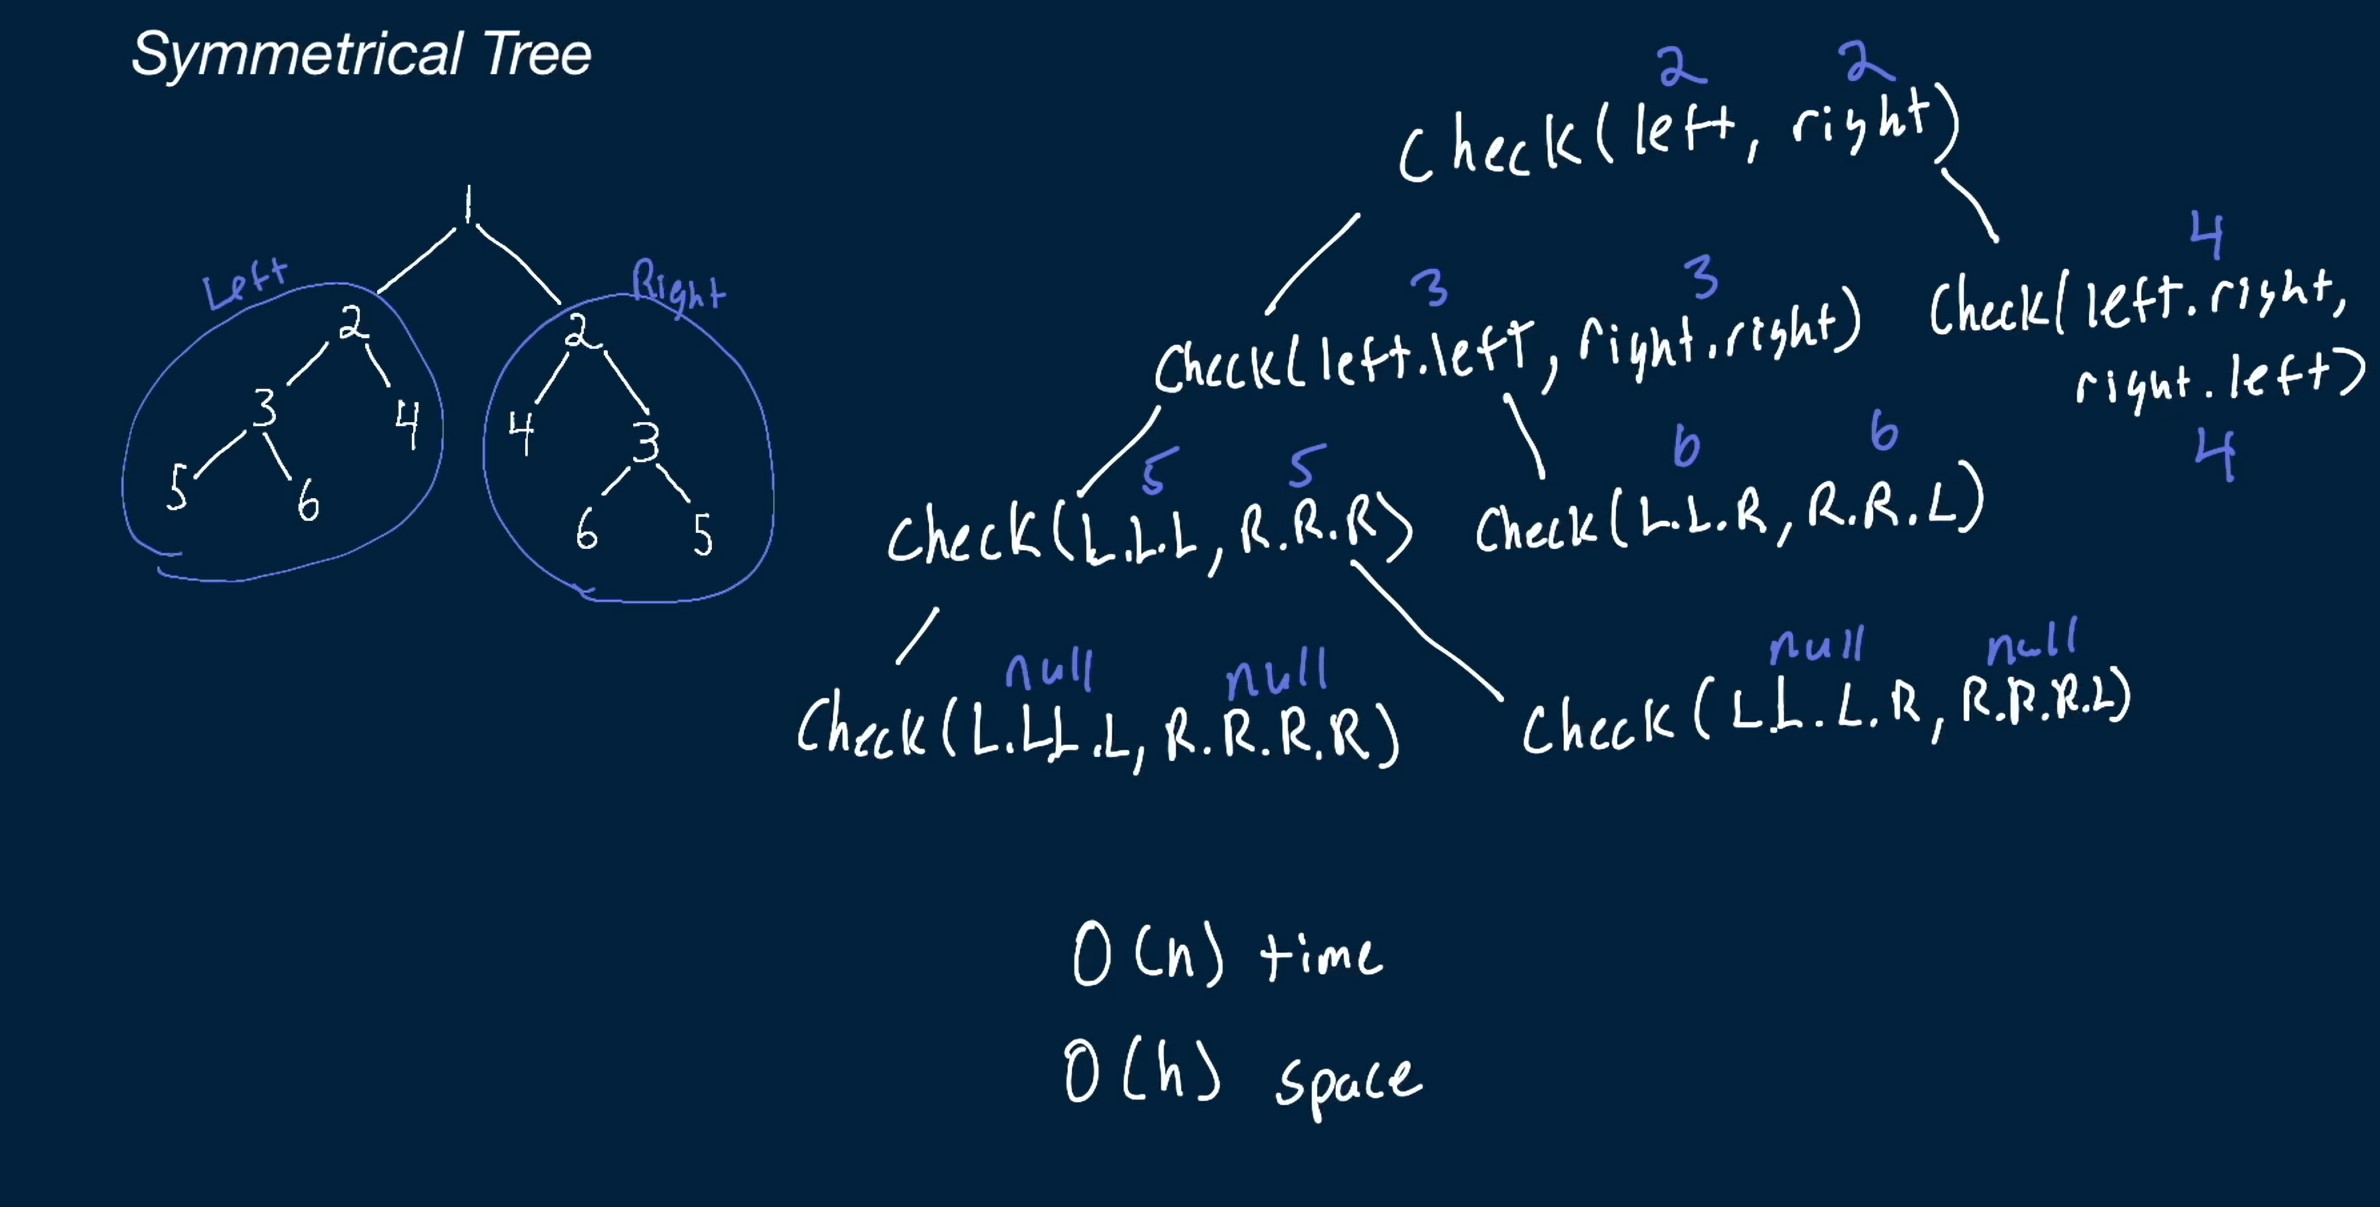 Symmetrical Tree
1
Left
Right
2 2
3 4 4 3
5 6 6 5
2 2
Check(left, right)
3 3
Check(left.left, right.right)
4
Check(left.right,
right.left)
4
5 5
Check(L.L.L, R.R.R)
6 6
Check(L.L.R, R.R.L)
null null
Check(L.L.L.L, R.R.R.R)
null null
Check(L.L.L.R, R.R.R.L)
O(n) time
O(h) space